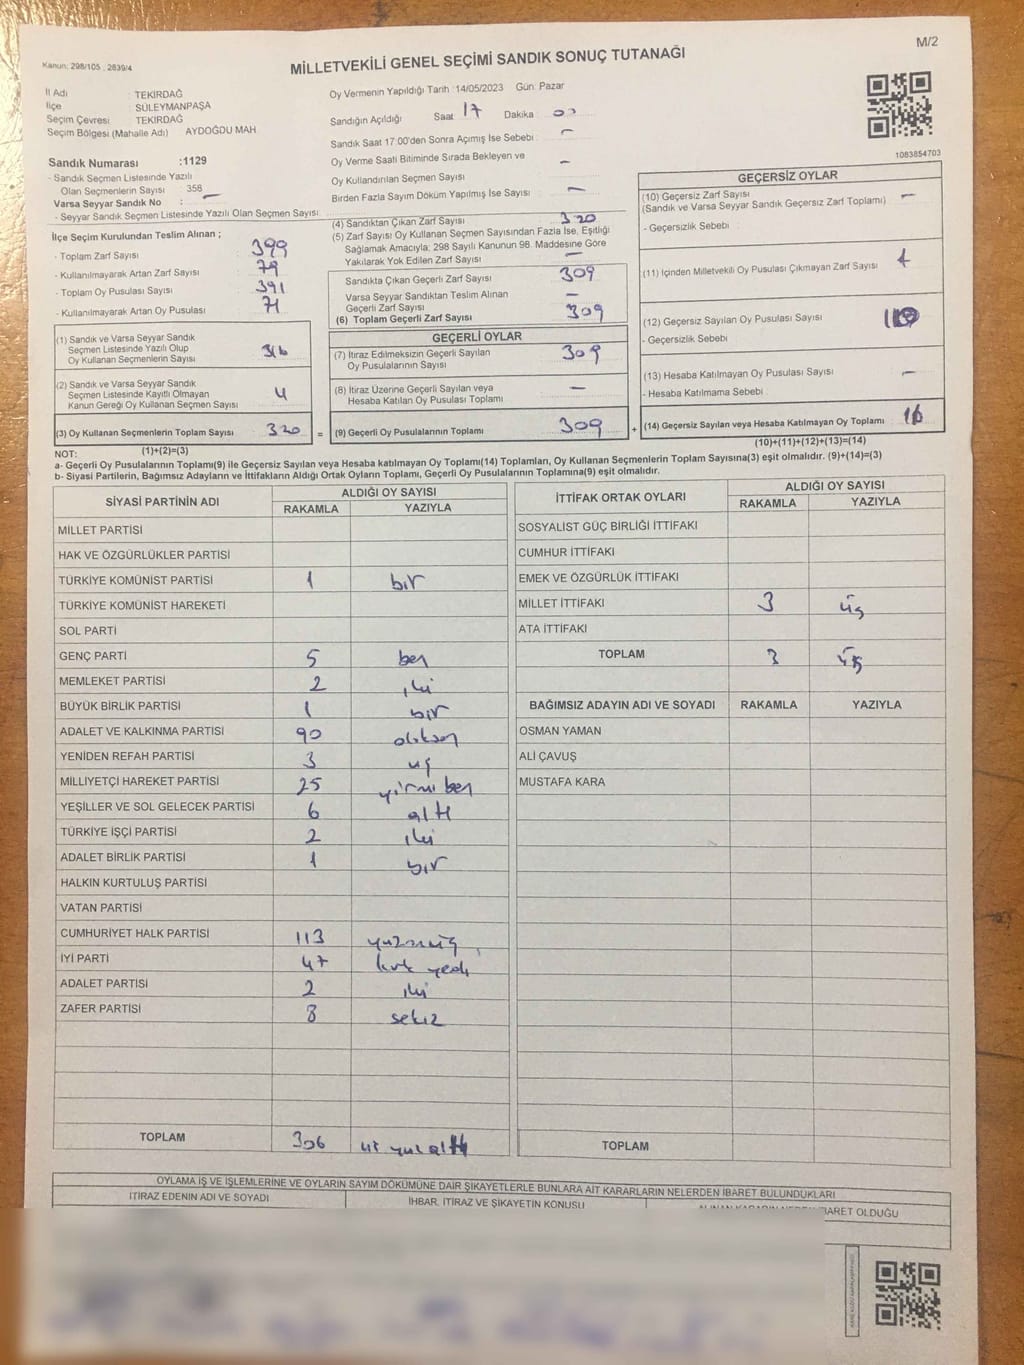 M/2
Kanun: 298/105 , 2839/4
MİLLETVEKİLİ GENEL SEÇİMİ SANDIK SONUÇ TUTANAĞI
İl Adı : TEKİRDAĞ
İlçe : SÜLEYMANPAŞA
Seçim Çevresi : TEKİRDAĞ
Seçim Bölgesi (Mahalle Adı) AYDOĞDU MAH
Oy Vermenin Yapıldığı Tarih :14/05/2023 Gün: Pazar
Sandığın Açıldığı Saat 17 Dakika 00
Sandık Saat 17:00'den Sonra Açımış İse Sebebi : -
Oy Verme Saati Bitiminde Sırada Bekleyen ve
Oy Kullandırılan Seçmen Sayısı : -
Birden Fazla Sayım Döküm Yapılmış İse Sayısı : -
1083854703
Sandık Numarası :1129
- Sandık Seçmen Listesinde Yazılı
Olan Seçmenlerin Sayısı 358
Varsa Seyyar Sandık No : -
- Seyyar Sandık Seçmen Listesinde Yazılı Olan Seçmen Sayısı:
İlçe Seçim Kurulundan Teslim Alınan ;
- Toplam Zarf Sayısı : 399
- Kullanılmayarak Artan Zarf Sayısı : 79
- Toplam Oy Pusulası Sayısı : 391
- Kullanılmayarak Artan Oy Pusulası : 71
(1) Sandık ve Varsa Seyyar Sandık
Seçmen Listesinde Yazılı Olup
Oy Kullanan Seçmenlerin Sayısı : 316
(2) Sandık ve Varsa Seyyar Sandık
Seçmen Listesinde Kayıtlı Olmayan
Kanun Gereği Oy Kullanan Seçmen Sayısı : 4
(3) Oy Kullanan Seçmenlerin Toplam Sayısı : 320
(1)+(2)=(3)
(4) Sandıktan Çıkan Zarf Sayısı : 320
(5) Zarf Sayısı Oy Kullanan Seçmen Sayısından Fazla İse, Eşitliği
Sağlamak Amacıyla; 298 Sayılı Kanunun 98. Maddesine Göre
Yakılarak Yok Edilen Zarf Sayısı : -
Sandıkta Çıkan Geçerli Zarf Sayısı : 309
Varsa Seyyar Sandıktan Teslim Alınan
Geçerli Zarf Sayısı : -
(6) Toplam Geçerli Zarf Sayısı : 309
GEÇERLİ OYLAR
(7) İtiraz Edilmeksizin Geçerli Sayılan
Oy Pusulalarının Sayısı : 309
(8) İtiraz Üzerine Geçerli Sayılan veya
Hesaba Katılan Oy Pusulası Toplamı : -
= (9) Geçerli Oy Pusulalarının Toplamı : 309
GEÇERSİZ OYLAR
(10) Geçersiz Zarf Sayısı
(Sandık ve Varsa Seyyar Sandık Geçersiz Zarf Toplamı) : -
- Geçersizlik Sebebi :
(11) İçinden Milletvekili Oy Pusulası Çıkmayan Zarf Sayısı :
(12) Geçersiz Sayılan Oy Pusulası Sayısı :
- Geçersizlik Sebebi :
(13) Hesaba Katılmayan Oy Pusulası Sayısı : -
- Hesaba Katılmama Sebebi :
+ (14) Geçersiz Sayılan veya Hesaba Katılmayan Oy Toplamı :
(10)+(11)+(12)+(13)=(14)
NOT:
a- Geçerli Oy Pusulalarının Toplamı(9) ile Geçersiz Sayılan veya Hesaba katılmayan Oy Toplamı(14) Toplamları, Oy Kullanan Seçmenlerin Toplam Sayısına(3) eşit olmalıdır. (9)+(14)=(3)
b- Siyasi Partilerin, Bağımsız Adayların ve İttifakların Aldığı Ortak Oyların Toplamı, Geçerli Oy Pusulalarının Toplamına(9) eşit olmalıdır.
SİYASİ PARTİNİN ADI ALDIĞI OY SAYISI
RAKAMLA YAZIYLA
MİLLET PARTİSİ
HAK VE ÖZGÜRLÜKLER PARTİSİ
TÜRKİYE KOMÜNİST PARTİSİ 1 bir
TÜRKİYE KOMÜNİST HAREKETİ
SOL PARTİ
GENÇ PARTİ 5 beş
MEMLEKET PARTİSİ 2 iki
BÜYÜK BİRLİK PARTİSİ 1 bir
ADALET VE KALKINMA PARTİSİ 90 doksan
YENİDEN REFAH PARTİSİ 3 üç
MİLLİYETÇİ HAREKET PARTİSİ 25 yirmi beş
YEŞİLLER VE SOL GELECEK PARTİSİ 6 altı
TÜRKİYE İŞÇİ PARTİSİ 2 iki
ADALET BİRLİK PARTİSİ 1 bir
HALKIN KURTULUŞ PARTİSİ
VATAN PARTİSİ
CUMHURİYET HALK PARTİSİ 113
İYİ PARTİ 47 kırk yedi
ADALET PARTİSİ 2 iki
ZAFER PARTİSİ 8 sekiz
TOPLAM 306 üç yüz altı
İTTİFAK ORTAK OYLARI ALDIĞI OY SAYISI
RAKAMLA YAZIYLA
SOSYALİST GÜÇ BİRLİĞİ İTTİFAKI
CUMHUR İTTİFAKI
EMEK VE ÖZGÜRLÜK İTTİFAKI
MİLLET İTTİFAKI 3 üç
ATA İTTİFAKI
TOPLAM 3 üç
BAĞIMSIZ ADAYIN ADI VE SOYADI RAKAMLA YAZIYLA
OSMAN YAMAN
ALİ ÇAVUŞ
MUSTAFA KARA
TOPLAM
OYLAMA İŞ VE İŞLEMLERİNE VE OYLARIN SAYIM DÖKÜMÜNE DAİR ŞİKAYETLERLE BUNLARA AİT KARARLARIN NELERDEN İBARET BULUNDUKLARI
İTİRAZ EDENİN ADI VE SOYADI
İHBAR, İTİRAZ VE ŞİKAYETİN KONUSU
İBARET OLDUĞU